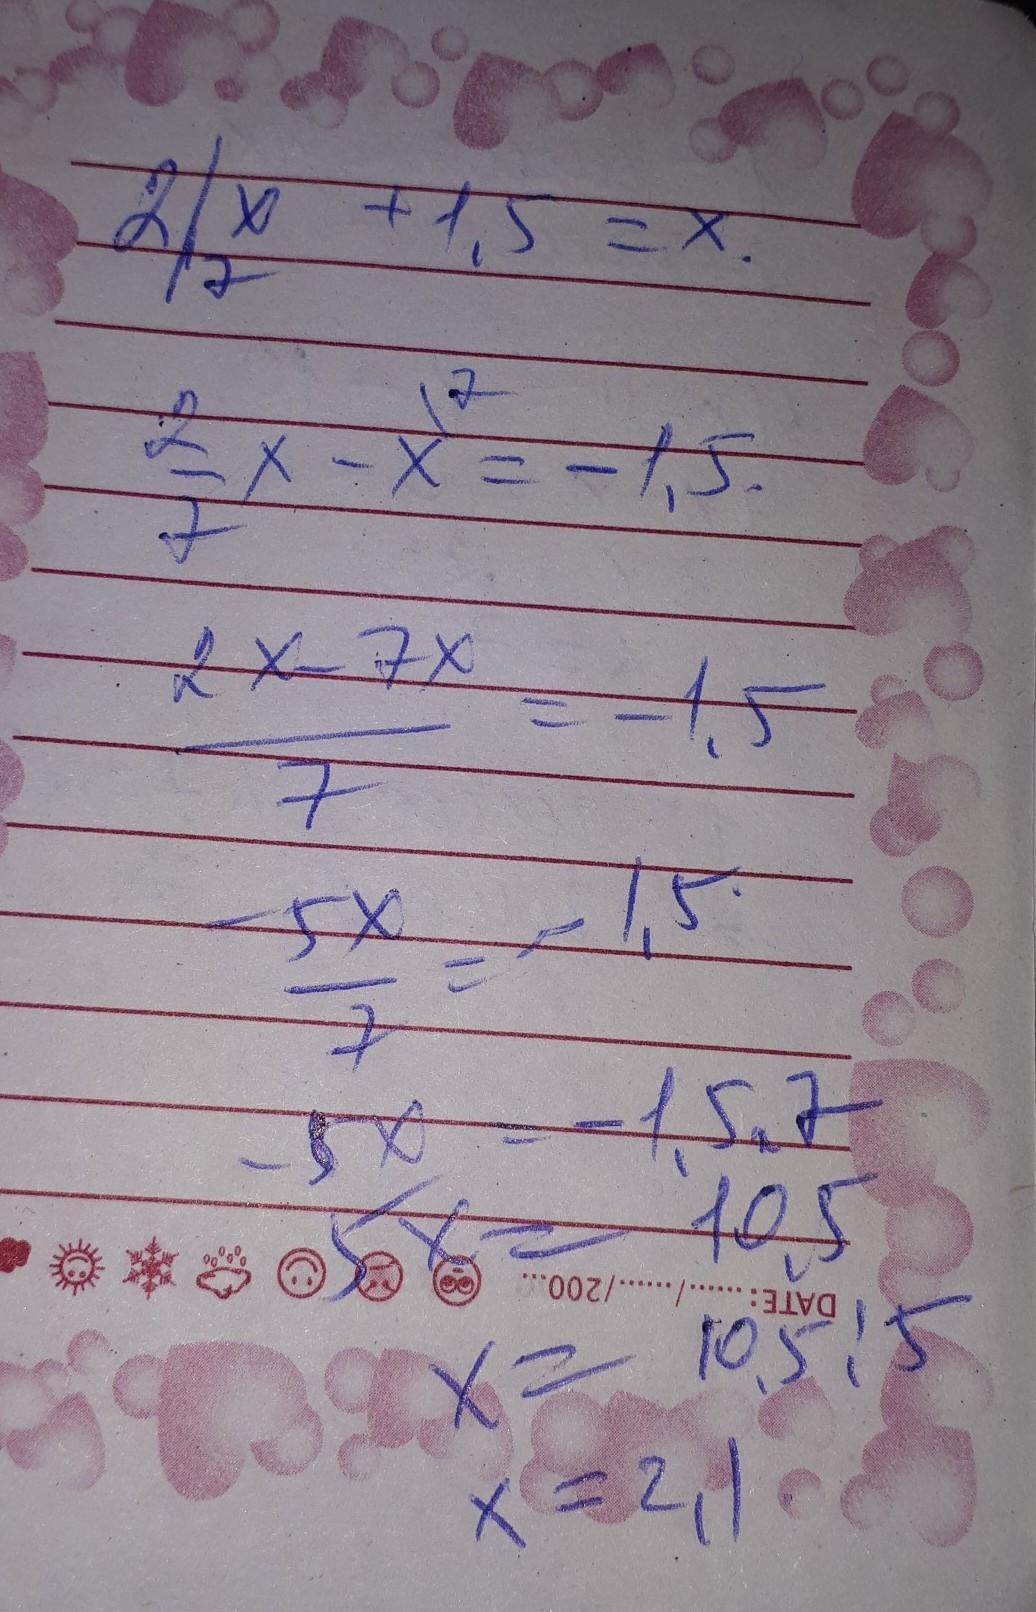 2/x/7 + 1,5 = x.
2/7 x - x\7 = - 1,5.
2x - 7x / 7 = - 1,5
- 5x / 7 = - 1,5.
- 5x = - 1,5 . 7
5x = 10,5
DATE: ....../....../200...
x = 10,5 : 5
x = 2,1.